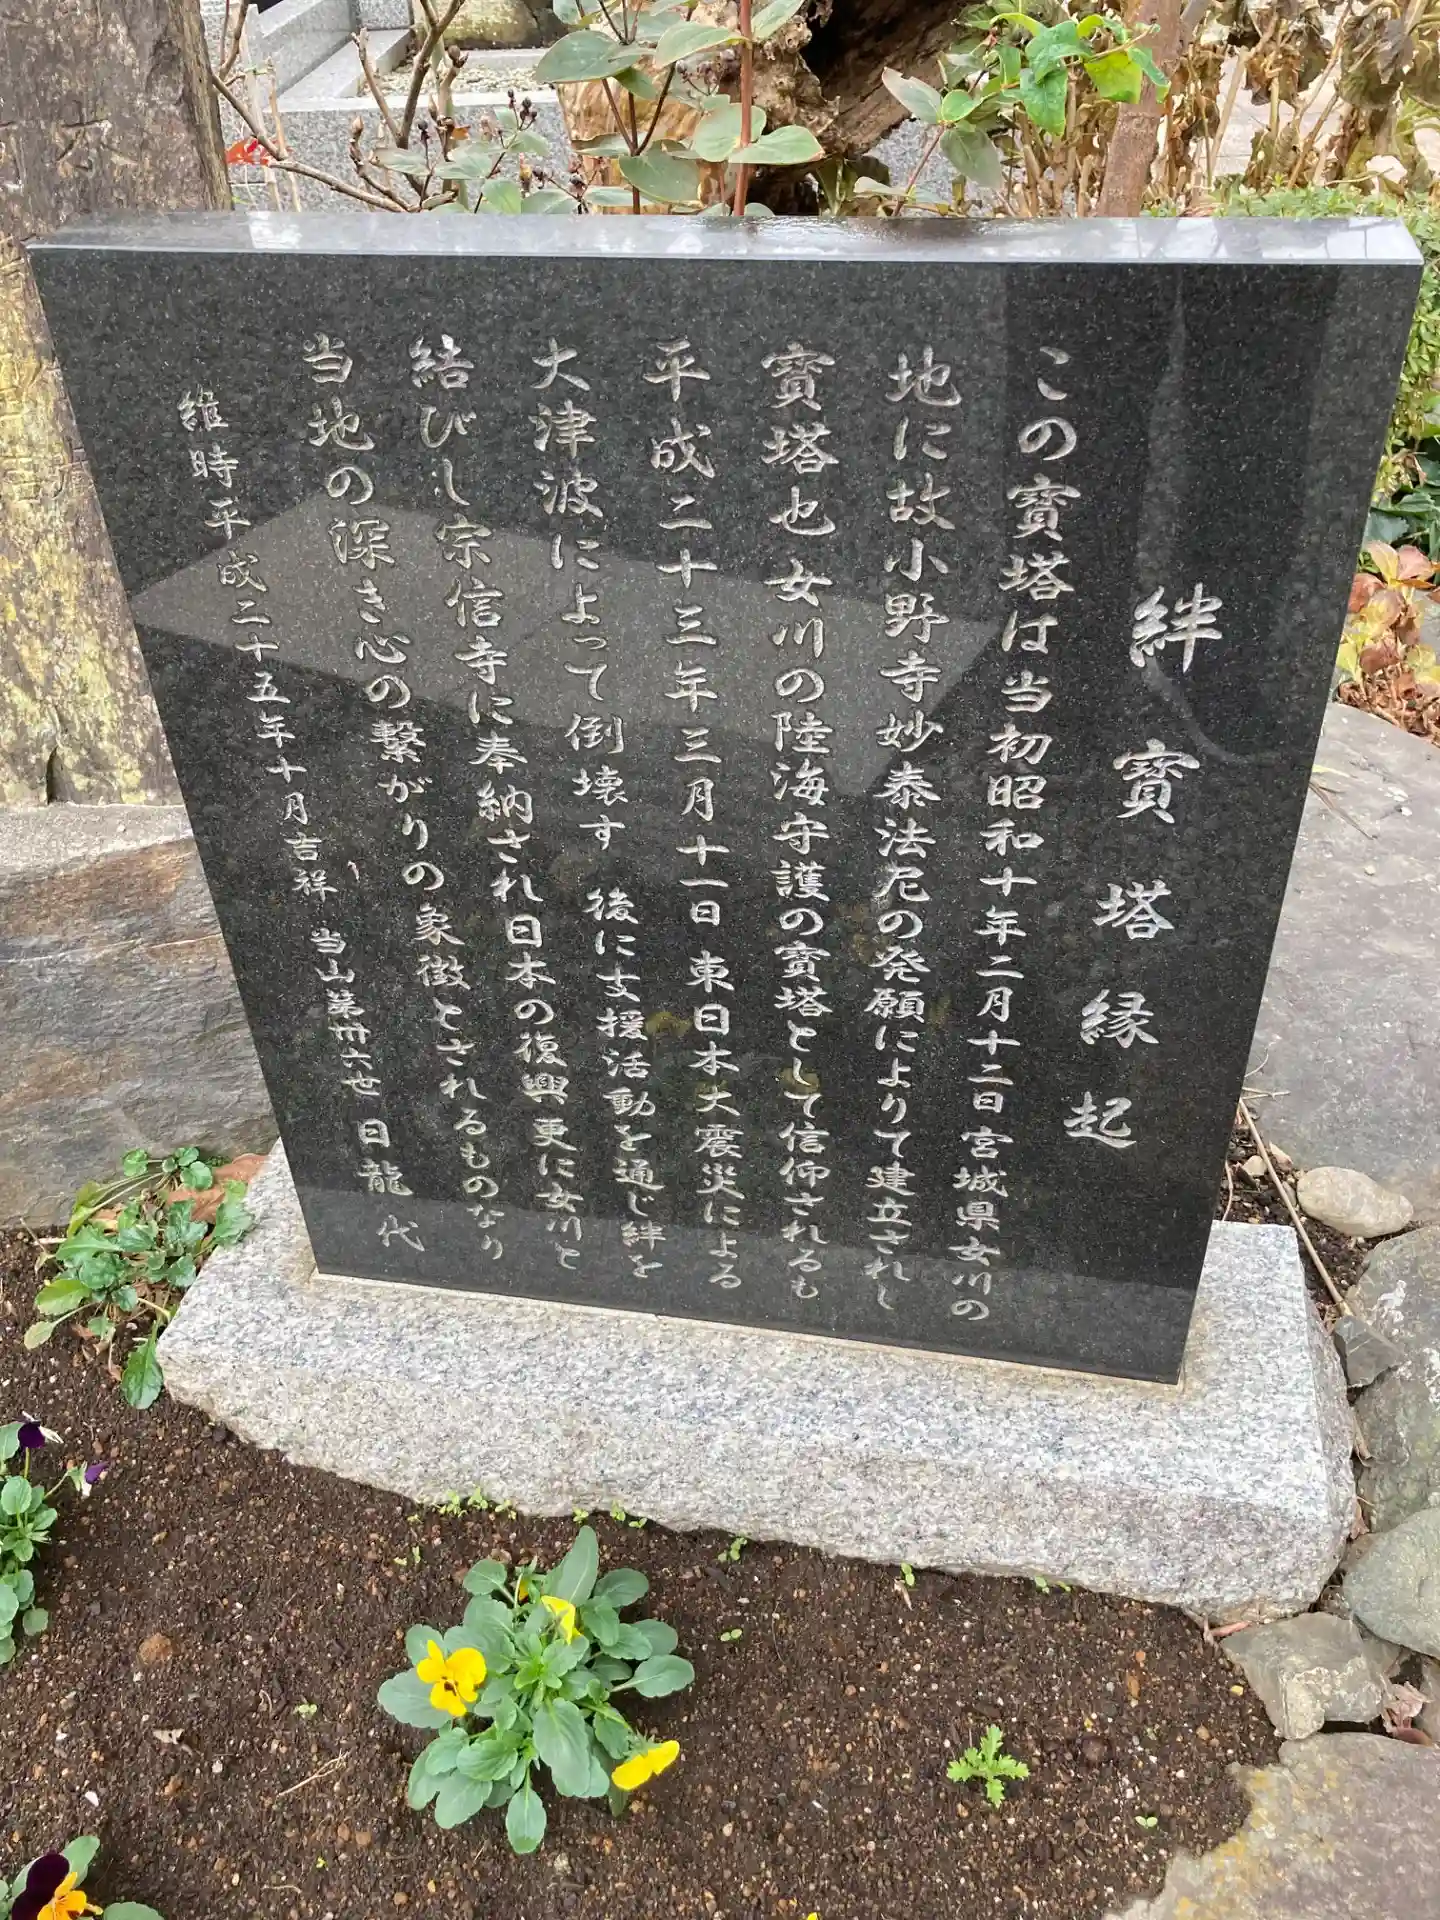 絆寶塔縁起
この寶塔は当初昭和十年二月十二日宮城県女川の
地に故小野寺妙泰法尼の発願によりて建立されし
寶塔也女川の陸海守護の寶塔として信仰されるも
平成二十三年三月十一日東日本大震災による
大津波によって倒壊す 後に支援活動を通じ絆を
結びし宗信寺に奉納され日本の復興更に女川と
当地の深き心の繋がりの象徴とされるものなり
維時平成二十五年十月吉祥 当山第卅六世 日龍 代